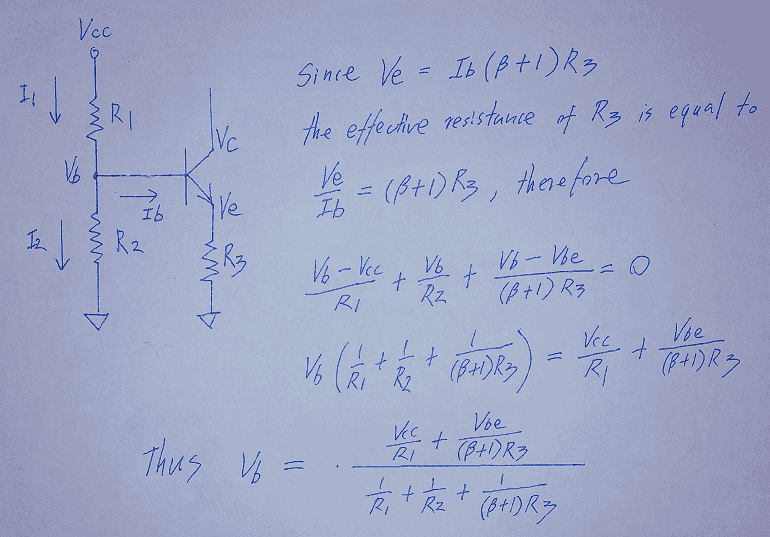 Vcc
I1
R1
Vb
Vc
Ib
Ve
I2
R2
R3
Since Ve = Ib (β+1) R3
the effective resistance of R3 is equal to
Ve/Ib = (β+1) R3 , therefore
(Vb - Vcc)/R1 + Vb/R2 + (Vb - Vbe)/((β+1) R3) = 0
Vb (1/R1 + 1/R2 + 1/((β+1)R3)) = Vcc/R1 + Vbe/((β+1)R3)
Thus Vb = (Vcc/R1 + Vbe/((β+1)R3)) / (1/R1 + 1/R2 + 1/((β+1)R3))